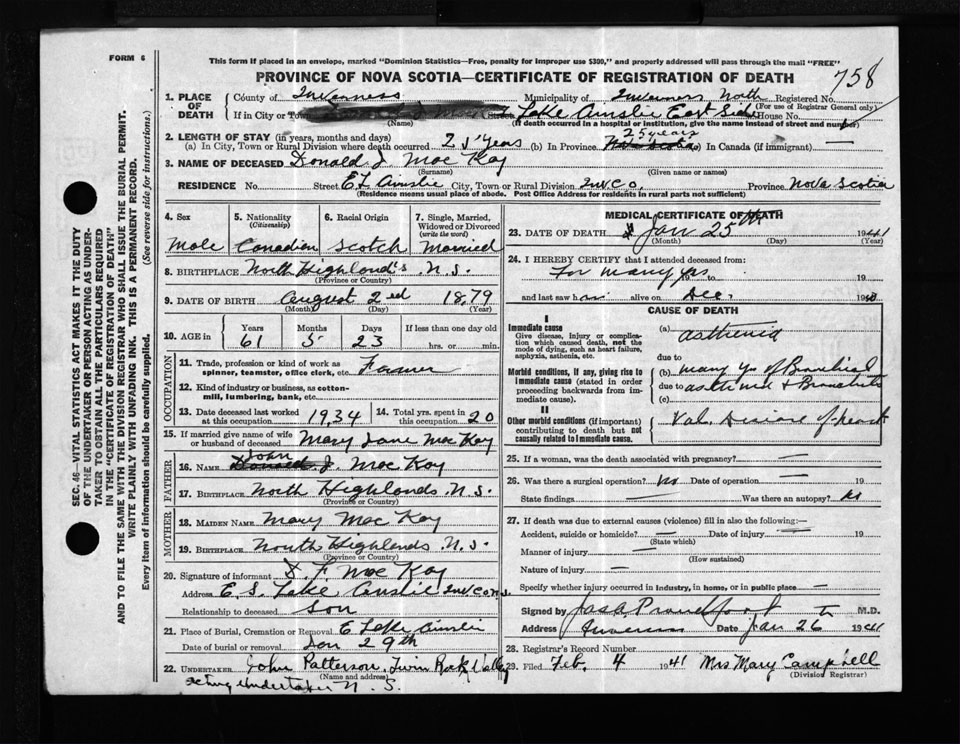 FORM 6
This form if placed in an envelope, marked "Dominion Statistics—Free, penalty for improper use $300," and properly addressed will pass through the mail "FREE"
PROVINCE OF NOVA SCOTIA—CERTIFICATE OF REGISTRATION OF DEATH
758
SEC. 46—VITAL STATISTICS ACT MAKES IT THE DUTY
OF THE UNDERTAKER OR PERSON ACTING AS UNDER-
TAKER TO OBTAIN ALL THE PARTICULARS REQUIRED
IN THE "CERTIFICATE OF REGISTRATION OF DEATH"
AND TO FILE THE SAME WITH THE DIVISION REGISTRAR WHO SHALL ISSUE THE BURIAL PERMIT.
WRITE PLAINLY WITH UNFADING INK. THIS IS A PERMANENT RECORD.
Every item of information should be carefully supplied. (See reverse side for instructions.)
1. PLACE OF DEATH County of Inverness Municipality of Inverness North Registered No.
(For use of Registrar General only)
If in City or Town Street Lake Ainslie East Side House No.
(Name) (If death occurred in a hospital or institution, give the name instead of street and number)
2. LENGTH OF STAY (in years, months and days)
(a) In City, Town or Rural Division where death occurred 25 years (b) In Province 25 years Nova Scotia (c) In Canada (if immigrant) —
3. NAME OF DECEASED Donald J. Mac Kay
(Surname) (Given name or names)
RESIDENCE No. Street E L Ainslie City, Town or Rural Division Inv Co. Province Nova Scotia
(Residence means usual place of abode. Post Office Address for residents in rural parts not sufficient)
4. Sex
Male
5. Nationality
(Citizenship)
Canadian
6. Racial Origin
Scotch
7. Single, Married,
Widowed or Divorced
(write the word)
Married
8. BIRTHPLACE North Highlands N.S.
(Province or Country)
9. DATE OF BIRTH August 2ed 1879
(Month) (Day) (Year)
10. AGE in Years Months Days If less than one day old
61 5 23 hrs. or min.
OCCUPATION
11. Trade, profession or kind of work as
spinner, teamster, office clerk, etc. Farmer
12. Kind of industry or business, as cotton-
mill, lumbering, bank, etc.
13. Date deceased last worked
at this occupation 1934
14. Total yrs. spent in
this occupation 20
15. If married give name of wife
or husband of deceased Mary Jane Mac Kay
FATHER
16. NAME John Donald J. Mac Kay
17. BIRTHPLACE North Highlands N.S.
(Province or Country)
MOTHER
18. MAIDEN NAME Mary Mac Kay
19. BIRTHPLACE North Highlands N.S.
(Province or Country)
20. Signature of informant D. F. Mac Kay
Address E. S. Lake Ainslie Inv Co N.S.
Relationship to deceased Son
21. Place of Burial, Cremation or Removal E Lake Ainslie
Date of burial or removal Jan 29th
22. UNDERTAKER John Patterson, Twin Rock Valley
(Name and address)
acting undertaker N. S.
MEDICAL CERTIFICATE OF DEATH
23. DATE OF DEATH Jan 25th 1941
(Month) (Day) (Year)
24. I HEREBY CERTIFY that I attended deceased from:
For many yrs 19 to 19
and last saw h im alive on Dec. 1940
CAUSE OF DEATH
I
Immediate cause
Give disease, injury or complica-
tion which caused death, not the
mode of dying, such as heart failure,
asphyxia, asthenia, etc.
(a) asthenia
due to
Morbid conditions, if any, giving rise to
immediate cause (stated in order
proceeding backwards from im-
mediate cause).
(b) many yrs of Bronchial
due to asthma & Bronchitis
(c)
II
Other morbid conditions (if important)
contributing to death but not
causally related to immediate cause.
Val. Disease of heart
25. If a woman, was the death associated with pregnancy? —
26. Was there a surgical operation? No Date of operation — 19
State findings — Was there an autopsy? No
27. If death was due to external causes (violence) fill in also the following:—
Accident, suicide or homicide? — Date of injury — 19
(State which)
Manner of injury —
(How sustained)
Nature of injury —
Specify whether injury occurred in industry, in home, or in public place —
Signed by M.D.
Address Inverness Date Jan 26th 1941
28. Registrar's Record Number
29. Filed Feb. 4 1941 Mrs Mary Campbell
(Division Registrar)